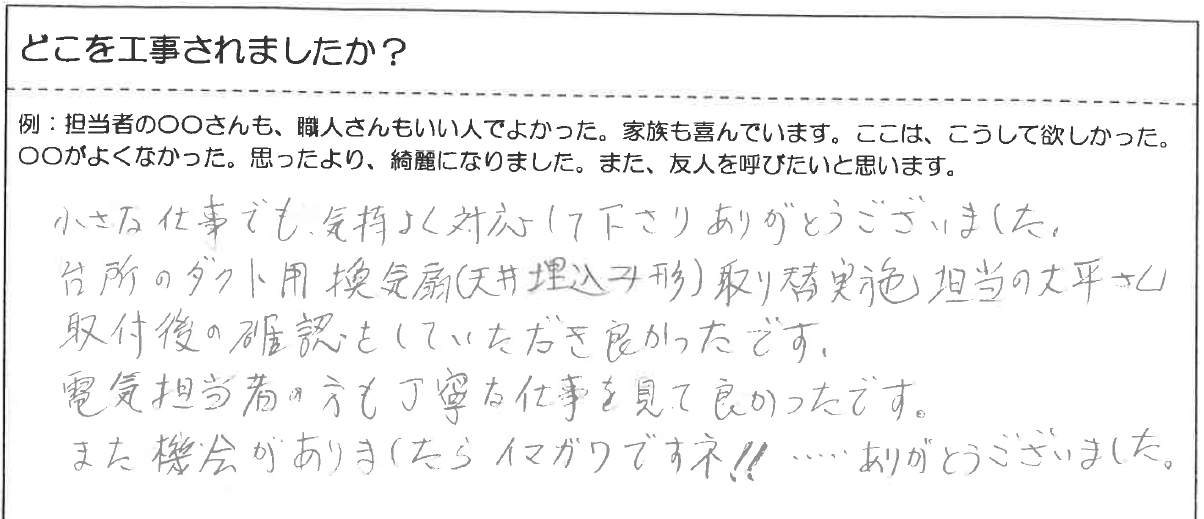 どこを工事されましたか？
例：担当者の〇〇さんも、職人さんもいい人でよかった。家族も喜んでいます。ここは、こうして欲しかった。
〇〇がよくなかった。思ったより、綺麗になりました。また、友人を呼びたいと思います。
小さな仕事でも、気持よく対応して下さりありがとうございました。
台所のダクト用換気扇(天井埋込み形)取り替実施 担当の大平さん
取付後の確認もしていただき良かったです。
電気担当者の方も丁寧な仕事を見て良かったです。
また機会がありましたらイマガワですネ!! ……ありがとうございました。